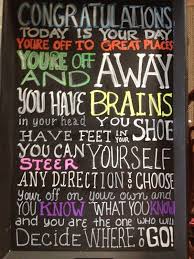 CONGRATULATIONS
TODAY IS YOUR DAY
YOURE OFF TO GREAT PLACES
YOURE OFF
AND AWAY
YOU HAVE BRAINS
in your head YOU
HAVE FEET IN YOUR SHOE
YOU CAN
STEER YOURSELF
ANY DIRECTION YOU CHOOSE
your off on your own and
YOU KNOW WHAT YOU KNOW
and you are the one who will
DECIDE WHERE TO GO!